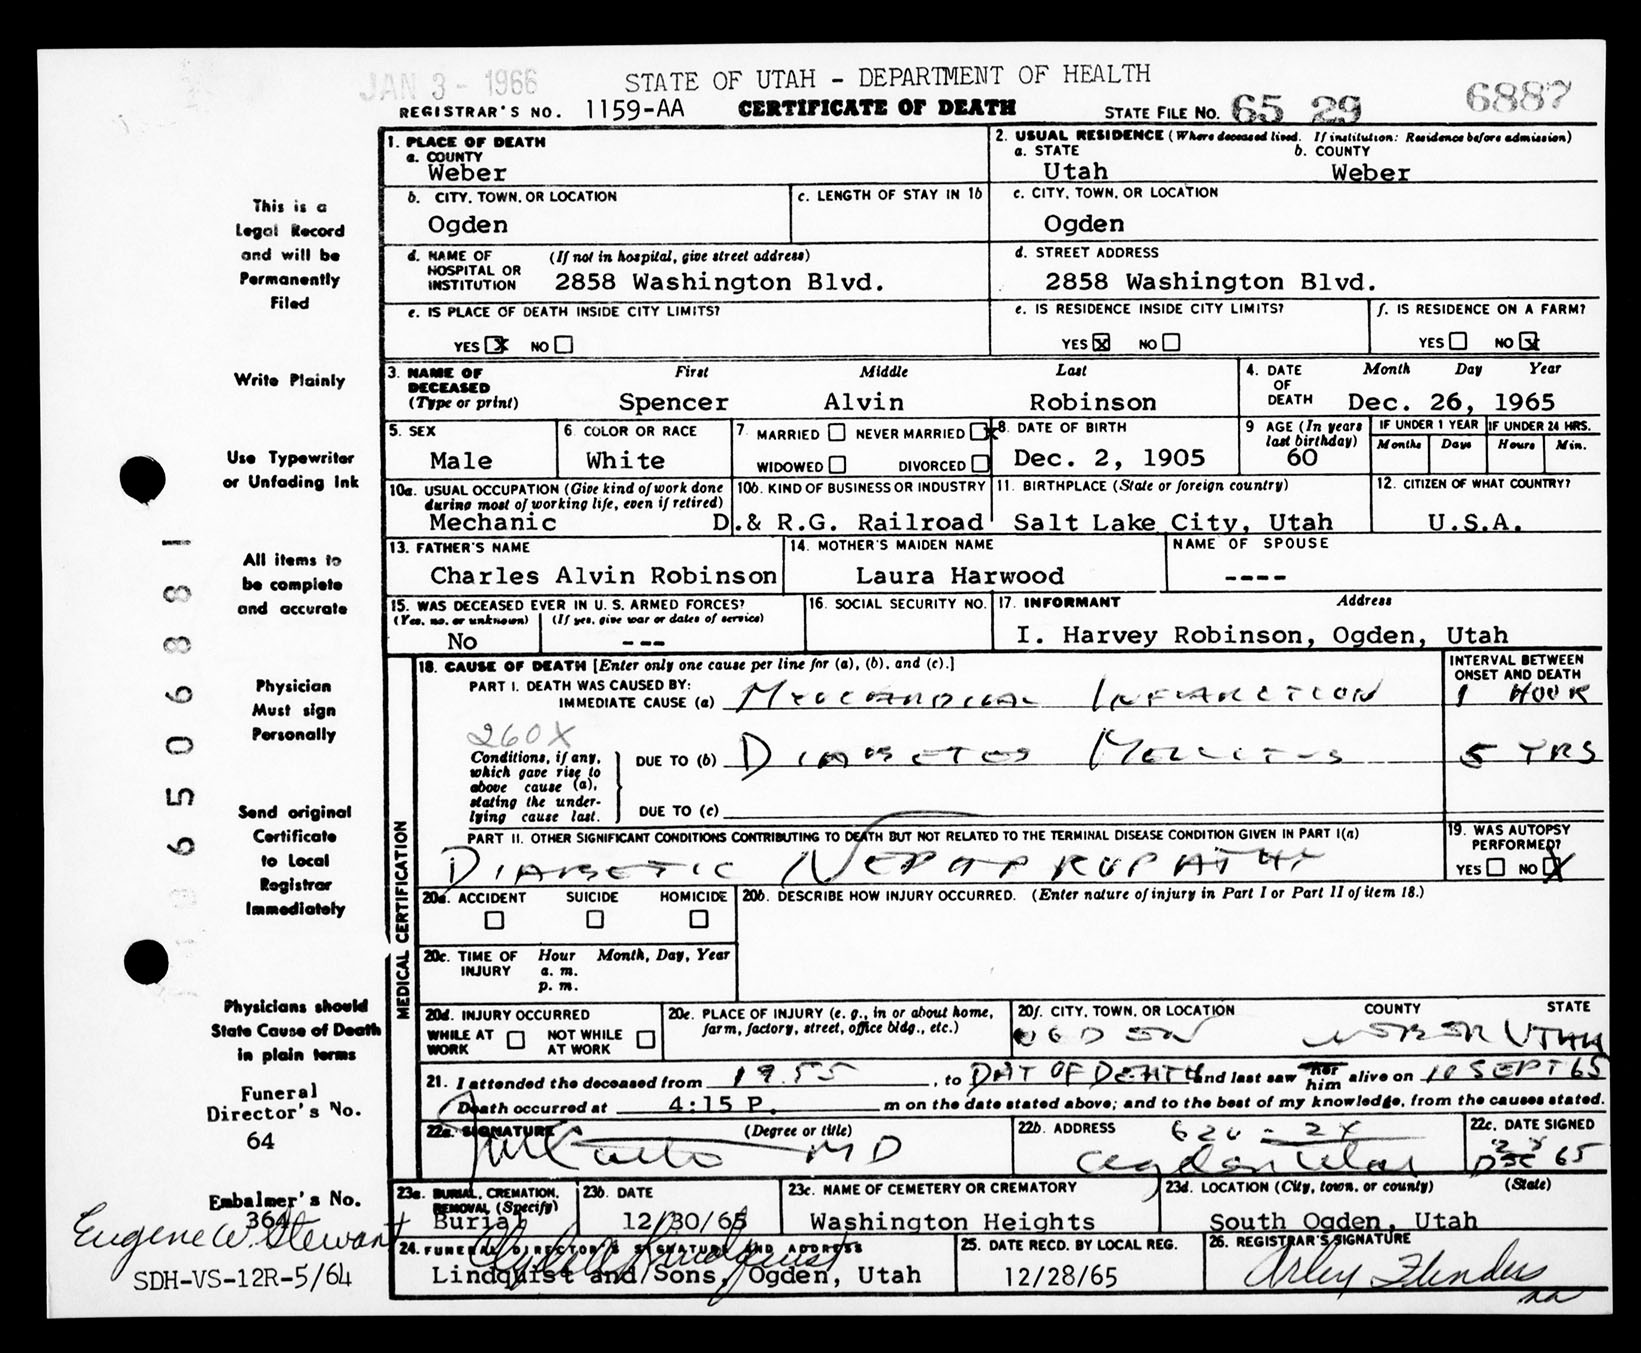 JAN 3 - 1966
STATE OF UTAH - DEPARTMENT OF HEALTH
6887
REGISTRAR'S NO. 1159-AA CERTIFICATE OF DEATH STATE FILE NO. 65 29
1. PLACE OF DEATH
a. COUNTY
Weber
2. USUAL RESIDENCE (Where deceased lived. If institution: Residence before admission)
a. STATE b. COUNTY
Utah Weber
b. CITY, TOWN, OR LOCATION
Ogden
c. LENGTH OF STAY IN 1b
c. CITY, TOWN, OR LOCATION
Ogden
d. NAME OF (If not in hospital, give street address)
HOSPITAL OR
INSTITUTION 2858 Washington Blvd.
d. STREET ADDRESS
2858 Washington Blvd.
e. IS PLACE OF DEATH INSIDE CITY LIMITS?
YES X NO
e. IS RESIDENCE INSIDE CITY LIMITS?
YES X NO
f. IS RESIDENCE ON A FARM?
YES NO X
3. NAME OF First Middle Last
DECEASED
(Type or print) Spencer Alvin Robinson
4. DATE Month Day Year
OF
DEATH Dec. 26, 1965
5. SEX
Male
6 COLOR OR RACE
White
7 MARRIED NEVER MARRIED X
WIDOWED DIVORCED
8. DATE OF BIRTH
Dec. 2, 1905
9 AGE (In years
last birthday)
60
IF UNDER 1 YEAR IF UNDER 24 HRS.
Months Days Hours Min.
10a. USUAL OCCUPATION (Give kind of work done
during most of working life, even if retired)
Mechanic
10b. KIND OF BUSINESS OR INDUSTRY
D.& R.G. Railroad
11. BIRTHPLACE (State or foreign country)
Salt Lake City, Utah
12. CITIZEN OF WHAT COUNTRY?
U.S.A.
13. FATHER'S NAME
Charles Alvin Robinson
14. MOTHER'S MAIDEN NAME
Laura Harwood
NAME OF SPOUSE
----
15. WAS DECEASED EVER IN U. S. ARMED FORCES?
(Yes, no, or unknown) (If yes, give war or dates of service)
No ---
16. SOCIAL SECURITY NO.
17. INFORMANT Address
I. Harvey Robinson, Ogden, Utah
MEDICAL CERTIFICATION
18. CAUSE OF DEATH [Enter only one cause per line for (a), (b), and (c).]
INTERVAL BETWEEN
ONSET AND DEATH
PART I. DEATH WAS CAUSED BY:
IMMEDIATE CAUSE (a) MYOCARDICAL INFARCTION 1 HOUR
260X
Conditions, if any,
which gave rise to
above cause (a),
stating the under-
lying cause last.
DUE TO (b) DIABETES MELLITUS 5 YRS
DUE TO (c)
PART II. OTHER SIGNIFICANT CONDITIONS CONTRIBUTING TO DEATH BUT NOT RELATED TO THE TERMINAL DISEASE CONDITION GIVEN IN PART I(a)
DIABETIC NEPHROPATHY
19. WAS AUTOPSY
PERFORMED?
YES NO X
20a. ACCIDENT SUICIDE HOMICIDE
20b. DESCRIBE HOW INJURY OCCURRED. (Enter nature of injury in Part I or Part II of item 18.)
20c. TIME OF Hour Month, Day, Year
INJURY a. m.
p. m.
20d. INJURY OCCURRED
WHILE AT WORK NOT WHILE AT WORK
20e. PLACE OF INJURY (e. g., in or about home,
farm, factory, street, office bldg., etc.)
20f. CITY, TOWN, OR LOCATION COUNTY STATE
OGDEN WEBER UTAH
21. I attended the deceased from 1955, to DAT OF DEATH and last saw her him alive on 10 SEPT 65
Death occurred at 4:15 P. m on the date stated above; and to the best of my knowledge, from the causes stated.
22a. SIGNATURE (Degree or title)
MD
22b. ADDRESS
Ogden Utah
22c. DATE SIGNED
DEC 65
23a. BURIAL, CREMATION,
REMOVAL (Specify)
Burial
23b. DATE
12/30/65
23c. NAME OF CEMETERY OR CREMATORY
Washington Heights
23d. LOCATION (City, town, or county) (State)
South Ogden, Utah
24. FUNERAL DIRECTOR'S SIGNATURE AND ADDRESS
Lindquist and Sons, Ogden, Utah
25. DATE RECD. BY LOCAL REG.
12/28/65
26. REGISTRAR'S SIGNATURE
Arley Flinders
aa
This is a
Legal Record
and will be
Permanently
Filed
Write Plainly
Use Typewriter
or Unfading Ink
All items to
be complete
and accurate
Physician
Must sign
Personally
Send original
Certificate
to Local
Registrar
Immediately
Physicians should
State Cause of Death
in plain terms
Funeral
Director's No.
64
Embalmer's No.
364
Eugene W. Stewart
SDH-VS-12R-5/64
6506881